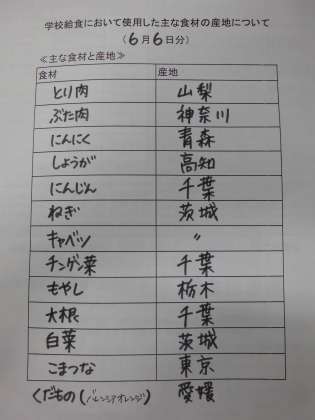 学校給食において使用した主な食材の産地について
(6月6日分)
≪主な食材と産地≫
食材 産地
とり肉 山梨
ぶた肉 神奈川
にんにく 青森
しょうが 高知
にんじん 千葉
ねぎ 茨城
キャベツ 〃
チンゲン菜 千葉
もやし 栃木
大根 千葉
白菜 茨城
こまつな 東京
くだもの(バレンシアオレンジ) 愛媛